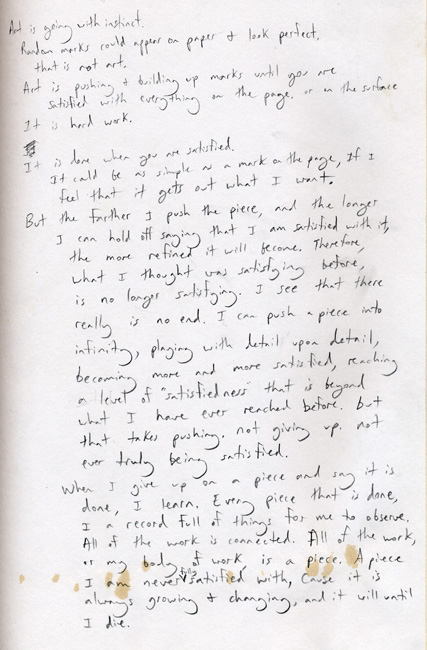 Art is going with instinct.
Random marks could appear on paper & look perfect,
that is not art.
Art is pushing & building up marks until you are
satisfied with everything on the page. or on the surface
It is hard work.
It is done when you are satisfied.
It could be as simple as a mark on the page, If I
feel that it gets out what I want.
But the farther I push the piece, and the longer
I can hold off saying that I am satisfied with it,
the more refined it will become. Therefore,
what I thought was satisfying before,
is no longer satisfying. I see that there
really is no end. I can push a piece into
infinity, playing with detail upon detail,
becoming more and more satisfied, reaching
a level of "satisfiedness" that is beyond
what I have ever reached before. but
that takes pushing. not giving up. not
ever truly being satisfied.
When I give up on a piece and say it is
done, I learn. Every piece that is done,
I a record full of things for me to observe.
All of the work is connected. All of the work,
or my body of work, is a piece. A piece
I am never fully satisfied with, Cause it is
always growing & changing, and it will until
I die.